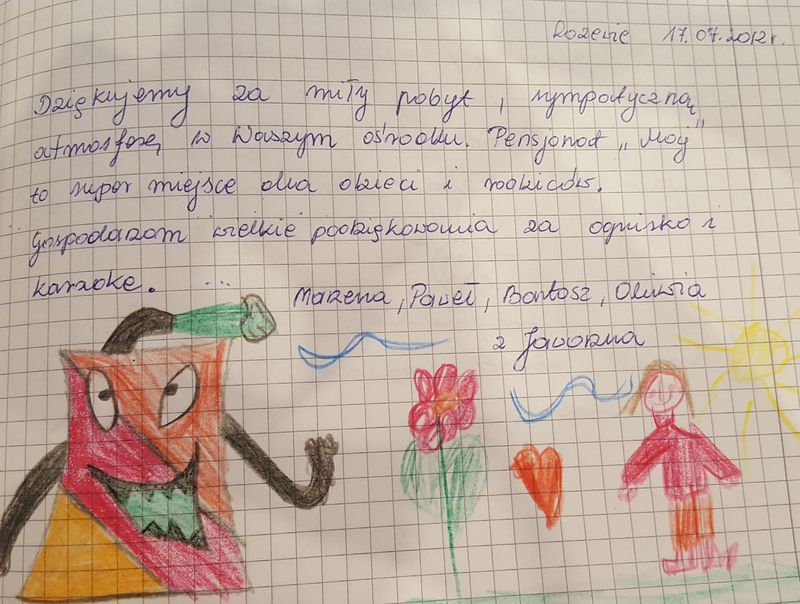 Rozewie 17.07.2012r.
Dziękujemy za miły pobyt, sympatyczną
atmosferę w Waszym ośrodku. Pensjonat „Maj”
to super miejsce dla dzieci i rodziców.
Gospodarzom wielkie podziękowania za ognisko i
karaoke. ...
Marzena, Paweł, Bartosz, Oliwia
z Jaworzna